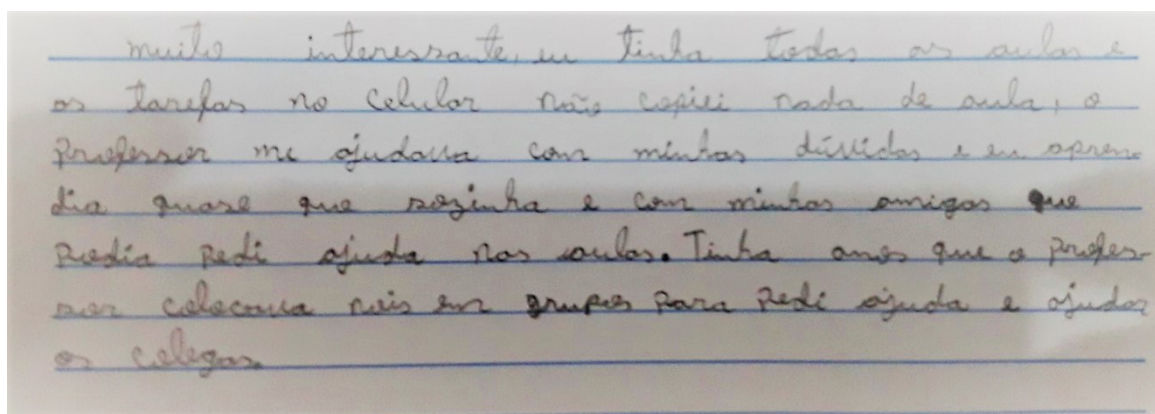 muito interessante, eu tinha todas as aulas e
as tarefas no celular não copiei nada de aula, o
professor me ajudava com minhas dúvidas e eu apren-
dia quase que sozinha e com minhas amigas que
podia pedi ajuda nas aulas. Tinha anos que o profes-
sor colocava nois em grupos para pedi ajuda e ajudar
os colegas.